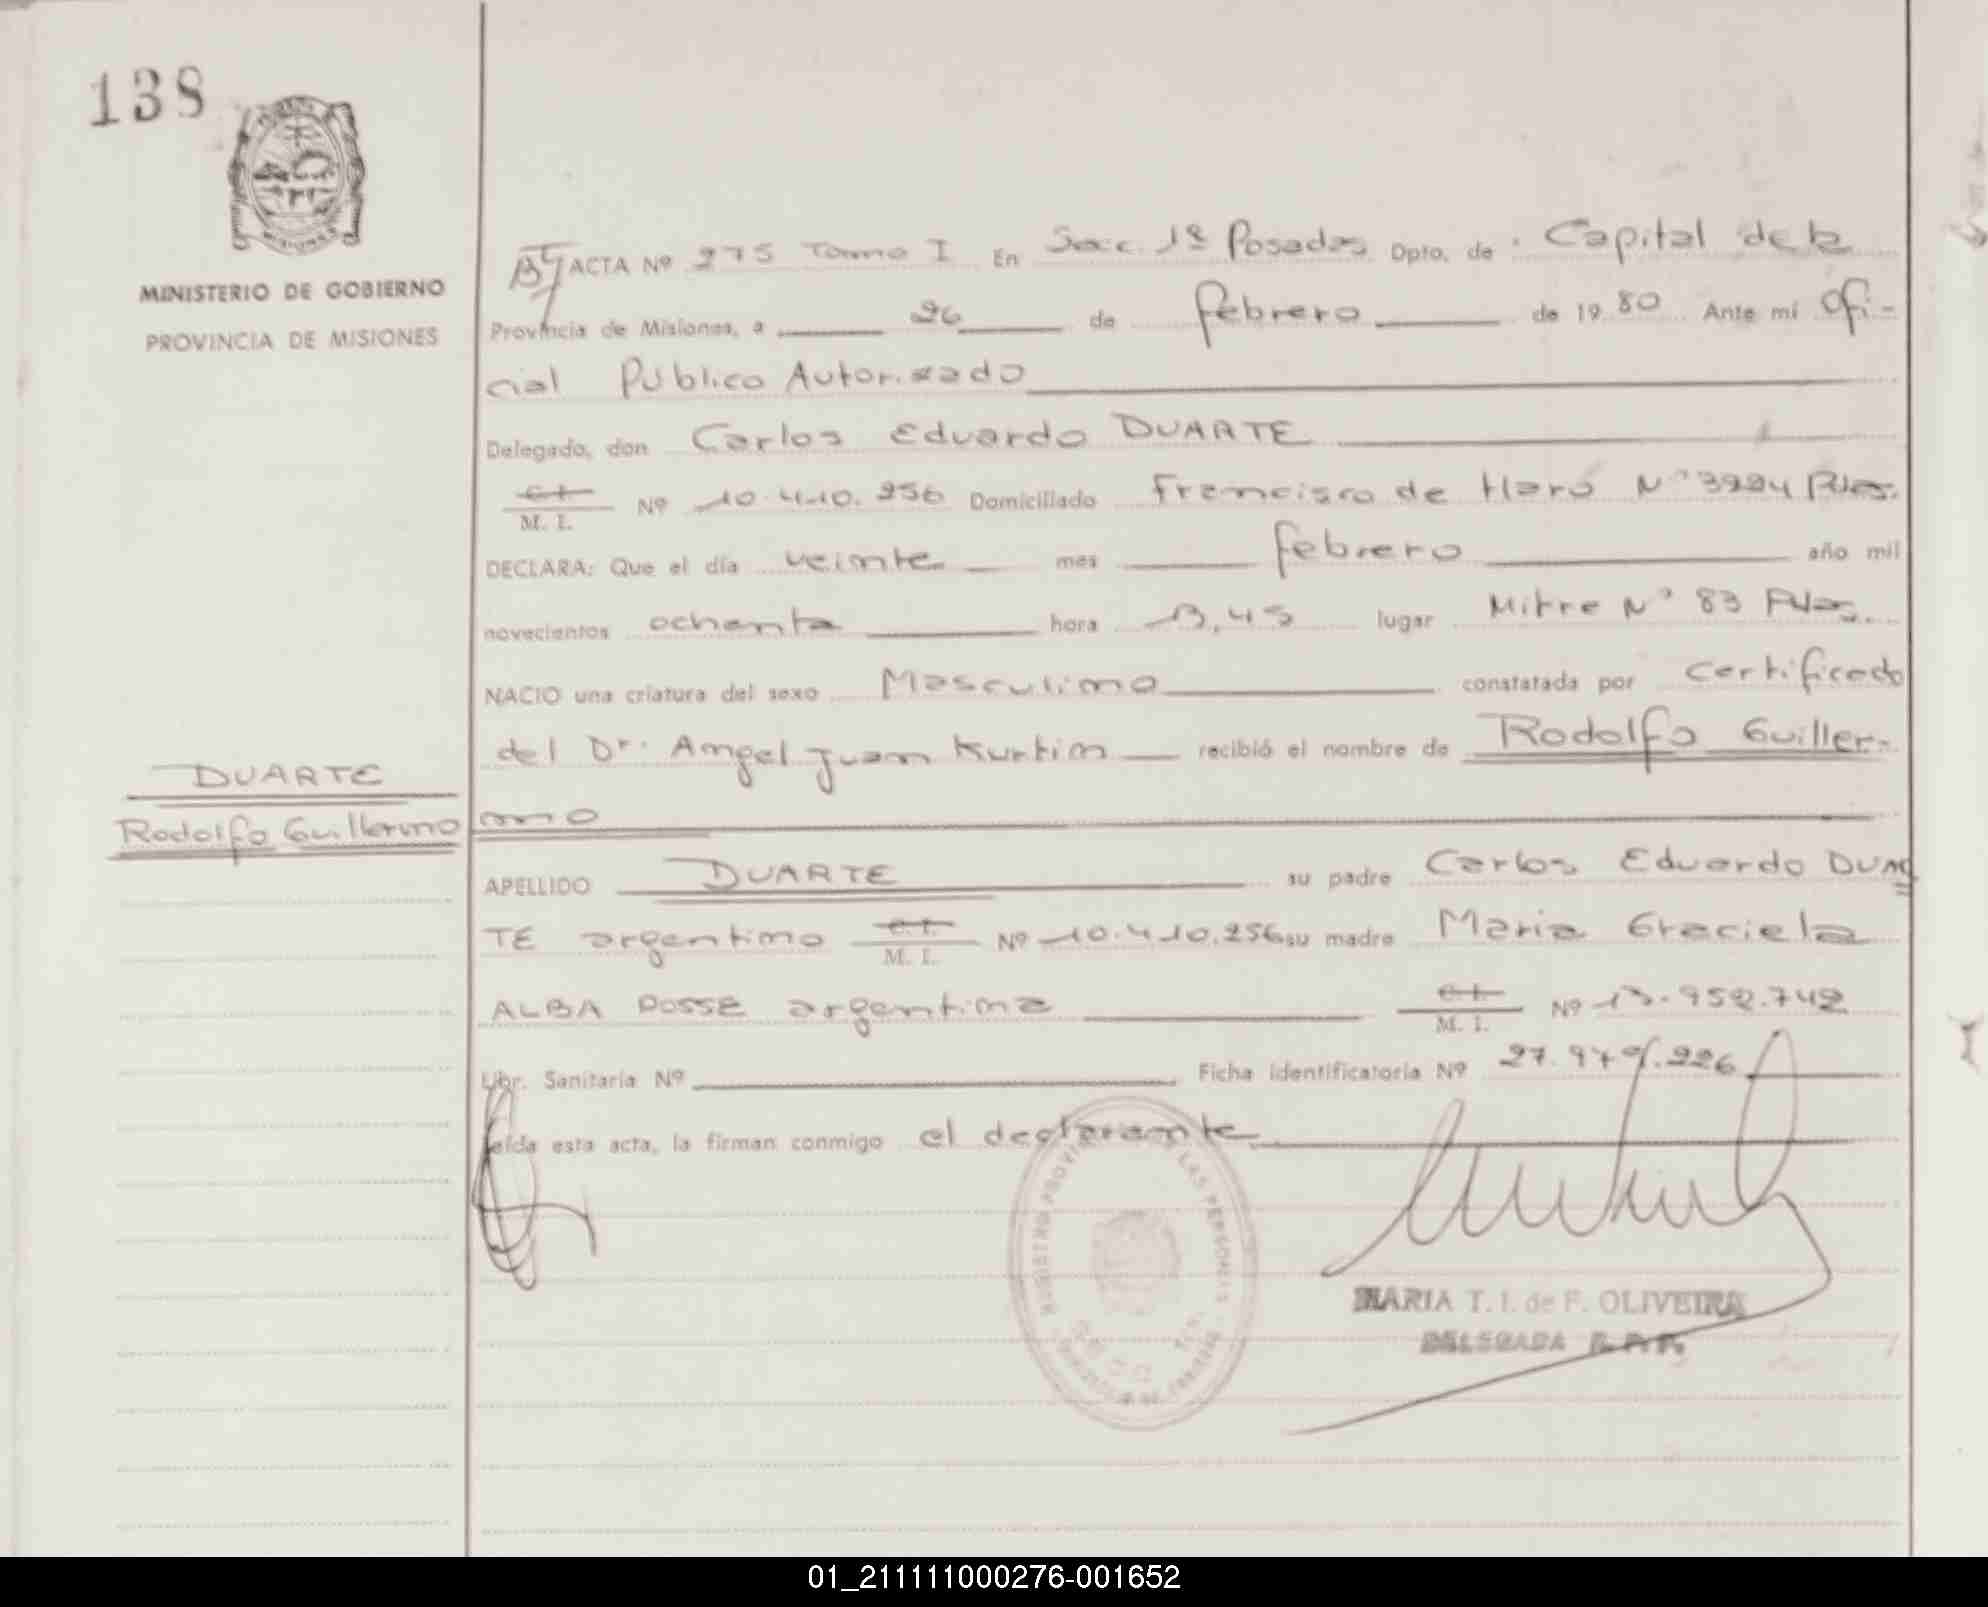 138
MINISTERIO DE GOBIERNO
PROVINCIA DE MISIONES
ACTA Nº 275 Tomo I En Secc. 1ª Posadas Dpto. de Capital de la
Provincia de Misiones, a 26 de febrero de 19 80 Ante mi Ofi-
cial Público Autorizado
Delegado, don Carlos Eduardo DUARTE
C.I. M. I. Nº 10.410.256 Domiciliado Francisco de Haro Nº 3924 Pdas.
DECLARA: Que el día veinte mes febrero año mil
novecientos ochenta hora 13,45 lugar Mitre Nº 83 Pdas.
NACIO una criatura del sexo Masculino constatada por certificado
del Dr. Angel Juan Kurtin recibió el nombre de Rodolfo Guiller-
mo
DUARTE
Rodolfo Guillermo
APELLIDO DUARTE su padre Carlos Eduardo DUAR
TE argentino C.I. M. I. Nº 10.410.256 su madre Maria Graciela
ALBA POSSE argentina C.I. M. I. Nº 13.952.742
Libr. Sanitaria Nº Ficha identificatoria Nº 27.979.226
Leída esta acta, la firman conmigo el declarante
REGISTRO PROVINCIAL DE LAS PERSONAS
MARIA T. I. de F. OLIVEIRA
DELEGADA R. P. P.
01_211111000276-001652